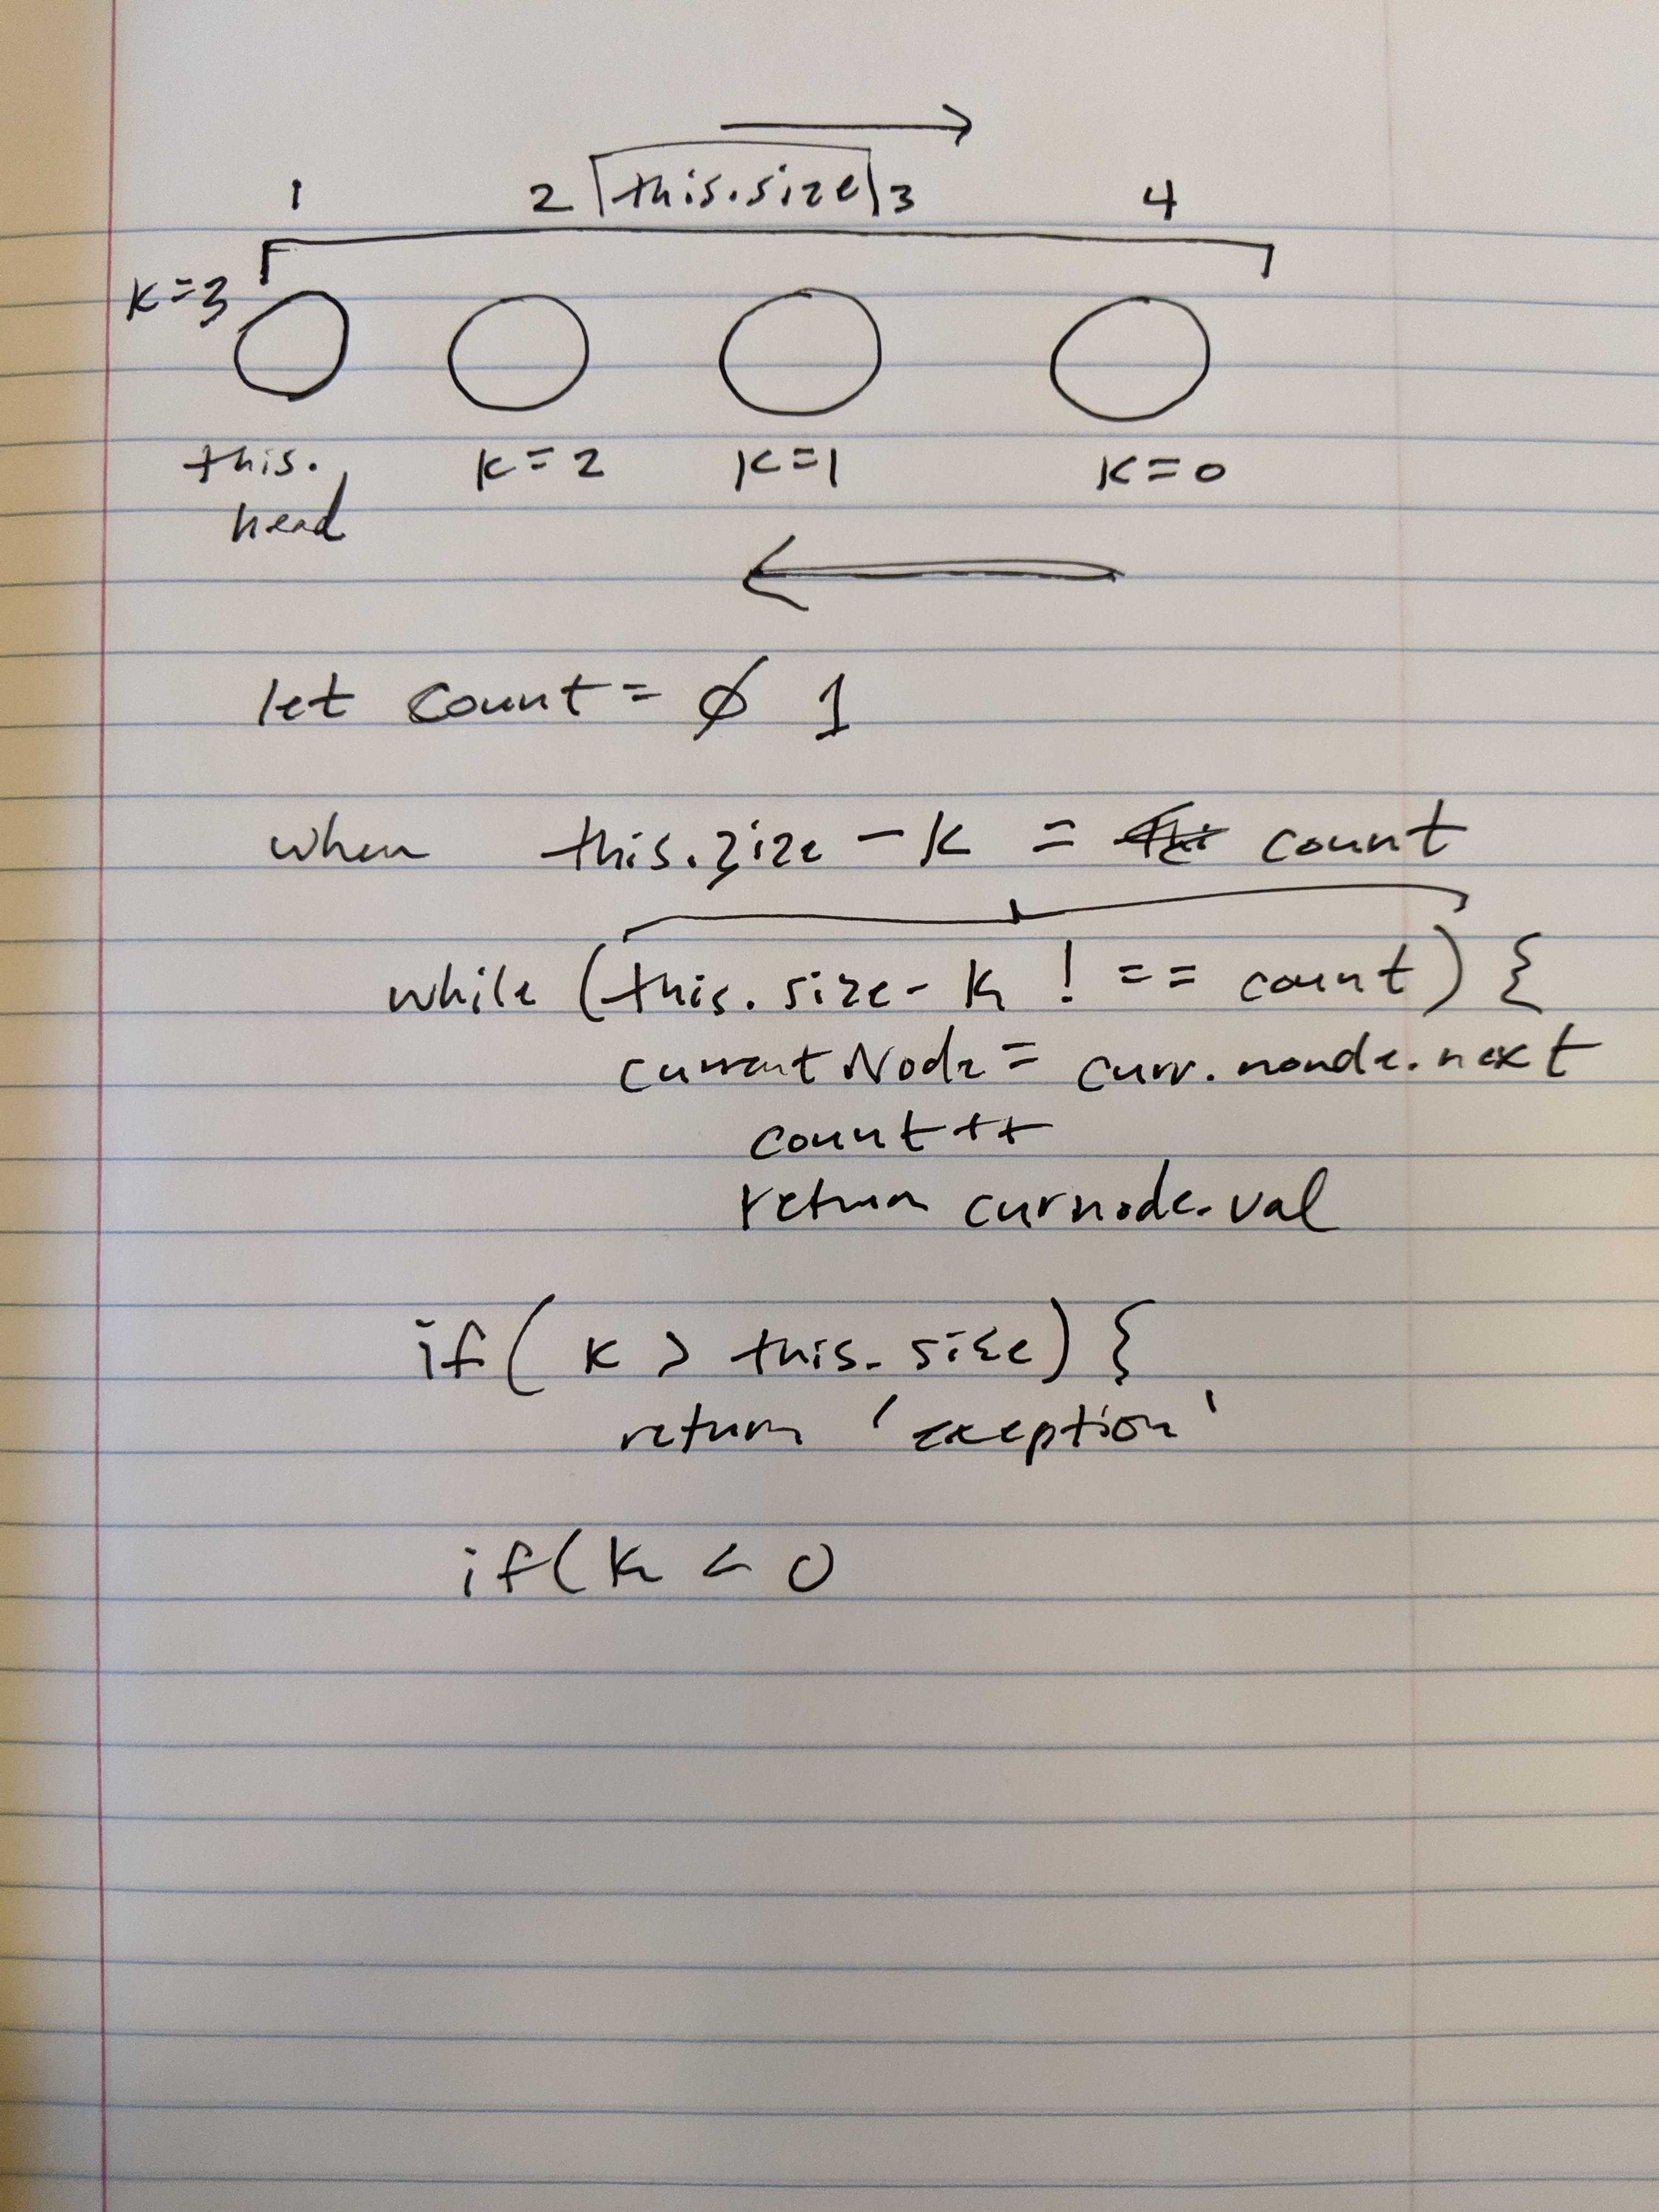 1 2 this.size 3 4
K=3
this. K=2 K=1 K=0
head
let count = 0 1
when this.size - K = count
while (this.size - K ! == count) {
currentNode = curr.nonde.next
count ++
return curnode.val
if ( K > this.size) {
return 'exeption'
if ( K < 0